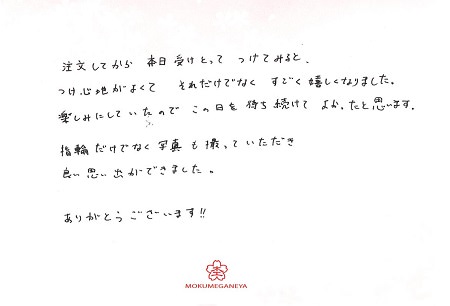 注文してから 本日受けとって つけてみると、
つけ心地がよくて それだけでなく すごく嬉しくなりました。
楽しみにしていたので この日を待ち続けて よかったと思います。
指輪だけでなく写真も撮っていただき
良い思い出ができました。
ありがとうございます!!
MOKUMEGANEYA